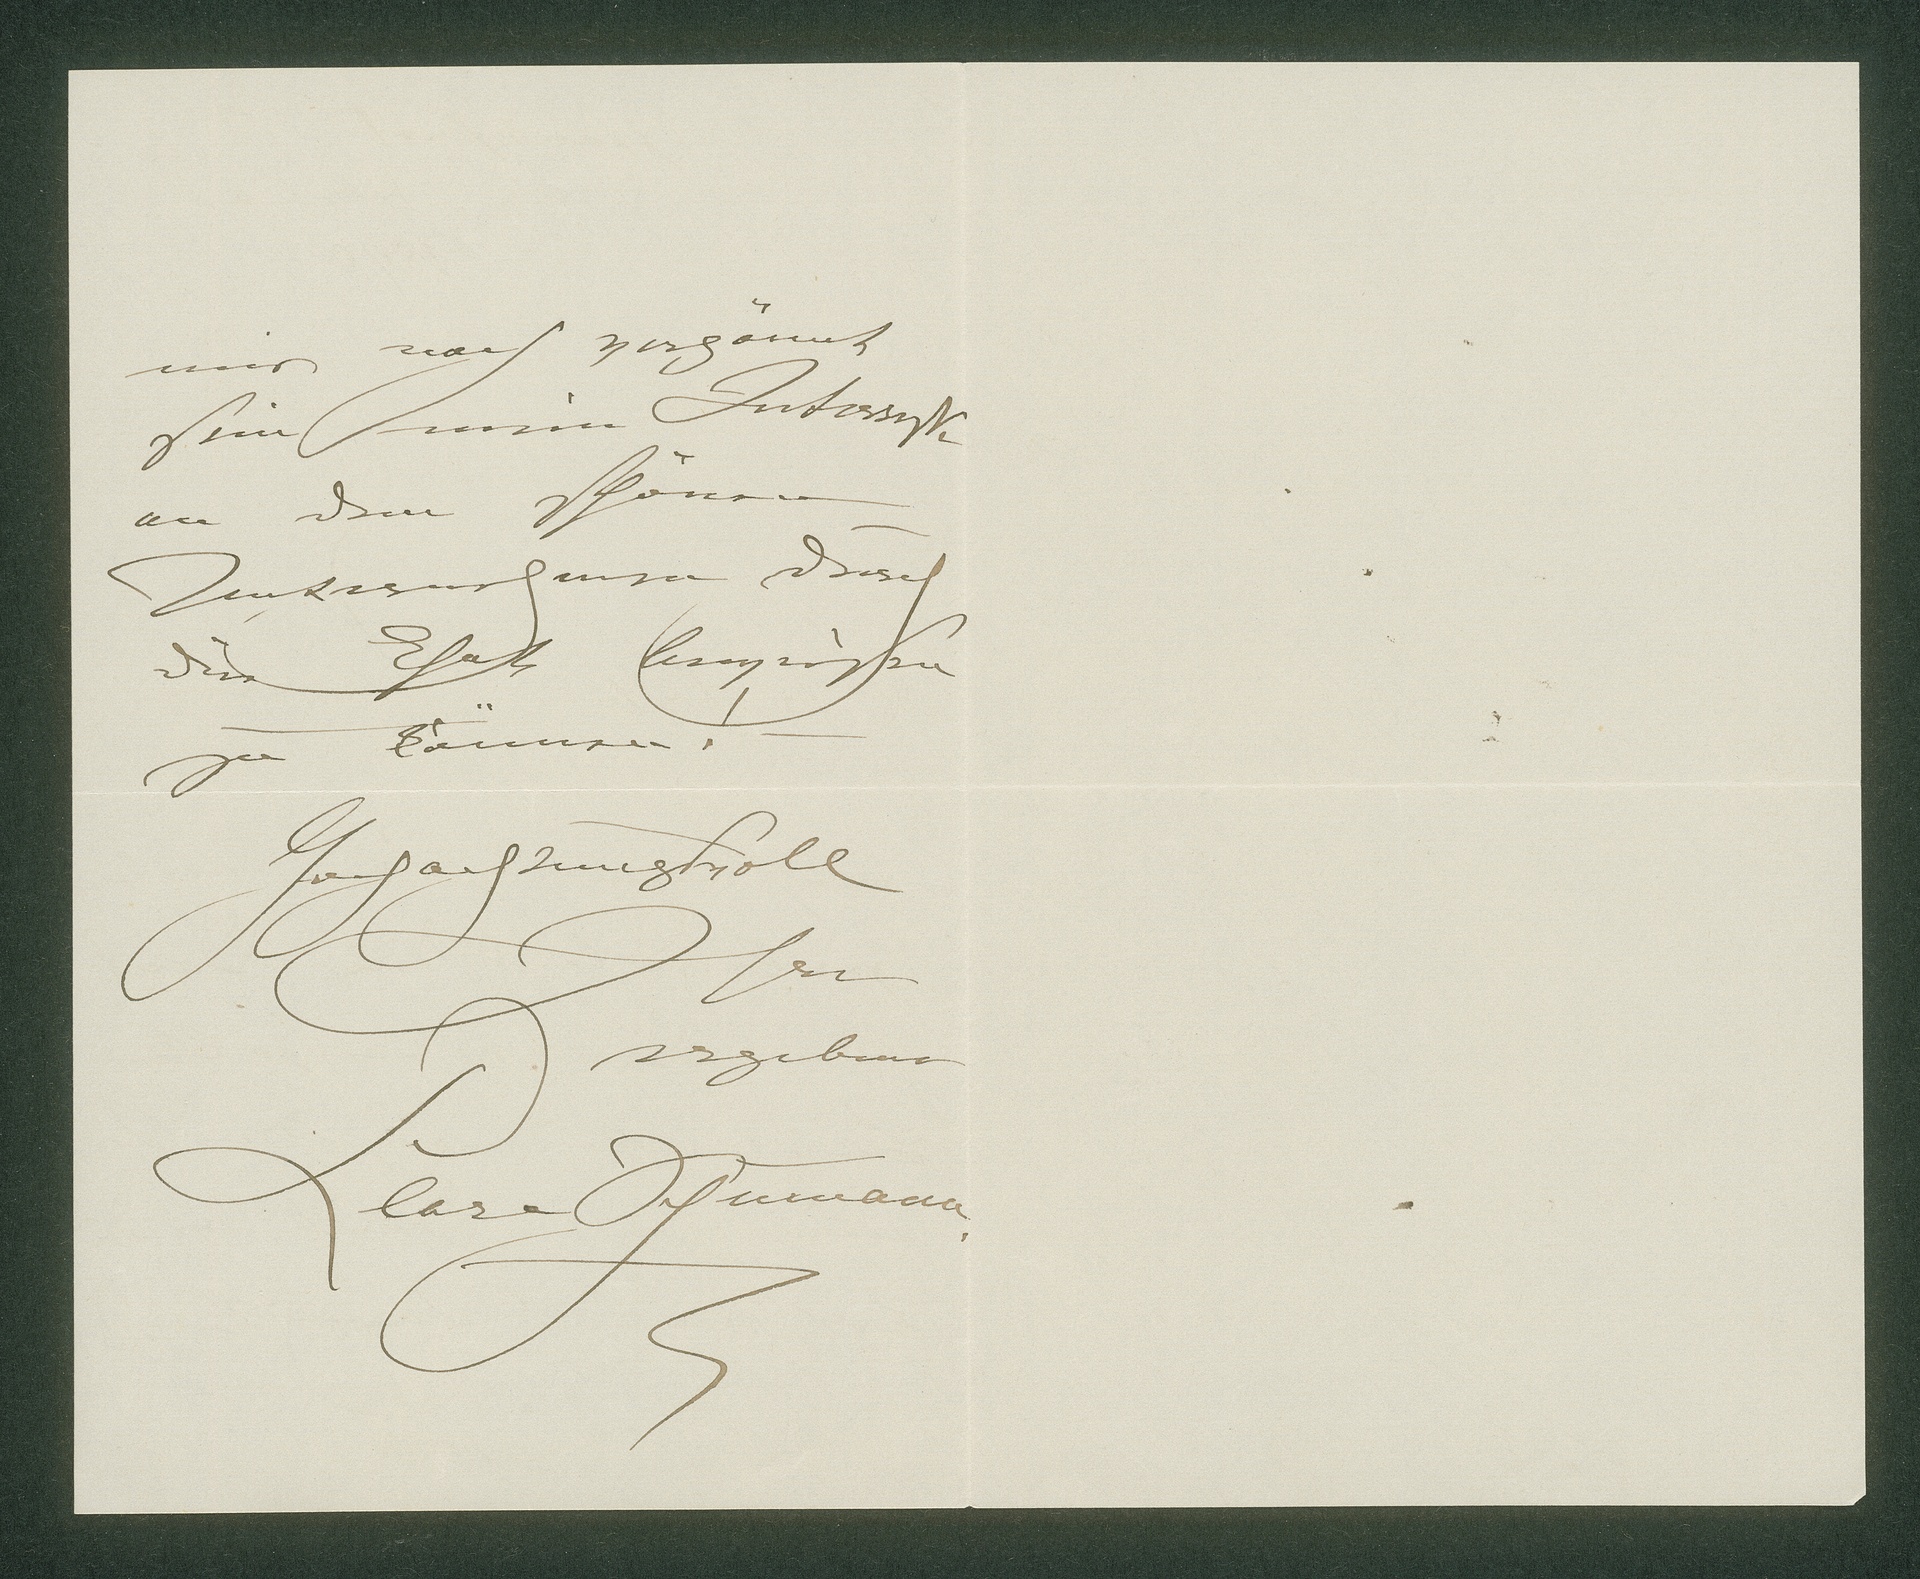 mir noch vergönnt
sein mein Interesse
an dem schönen
Unternehmen durch
die That beweisen
zu können! —
Hochachtungsvoll
Ihre
ergebene
Clara Schumann.